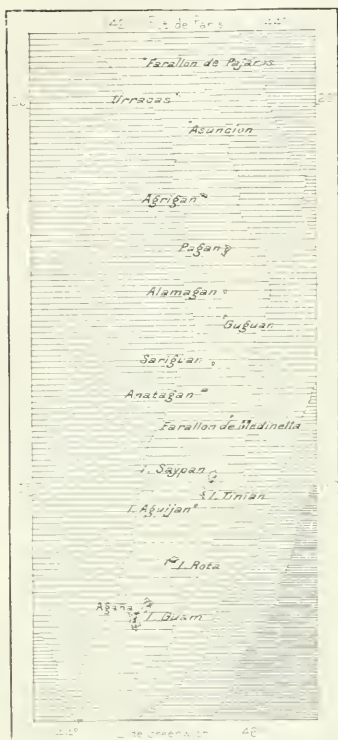 Farallon de Pajaros
Urracas
Asuncion
Agrigan
Pagan
Alamagan
Guguan
Sariguan
Anatagan
Farallon de Medinella
I. Saypan
I. Tinian
I. Aguijan
I. Rota
Agaña
I. Guam